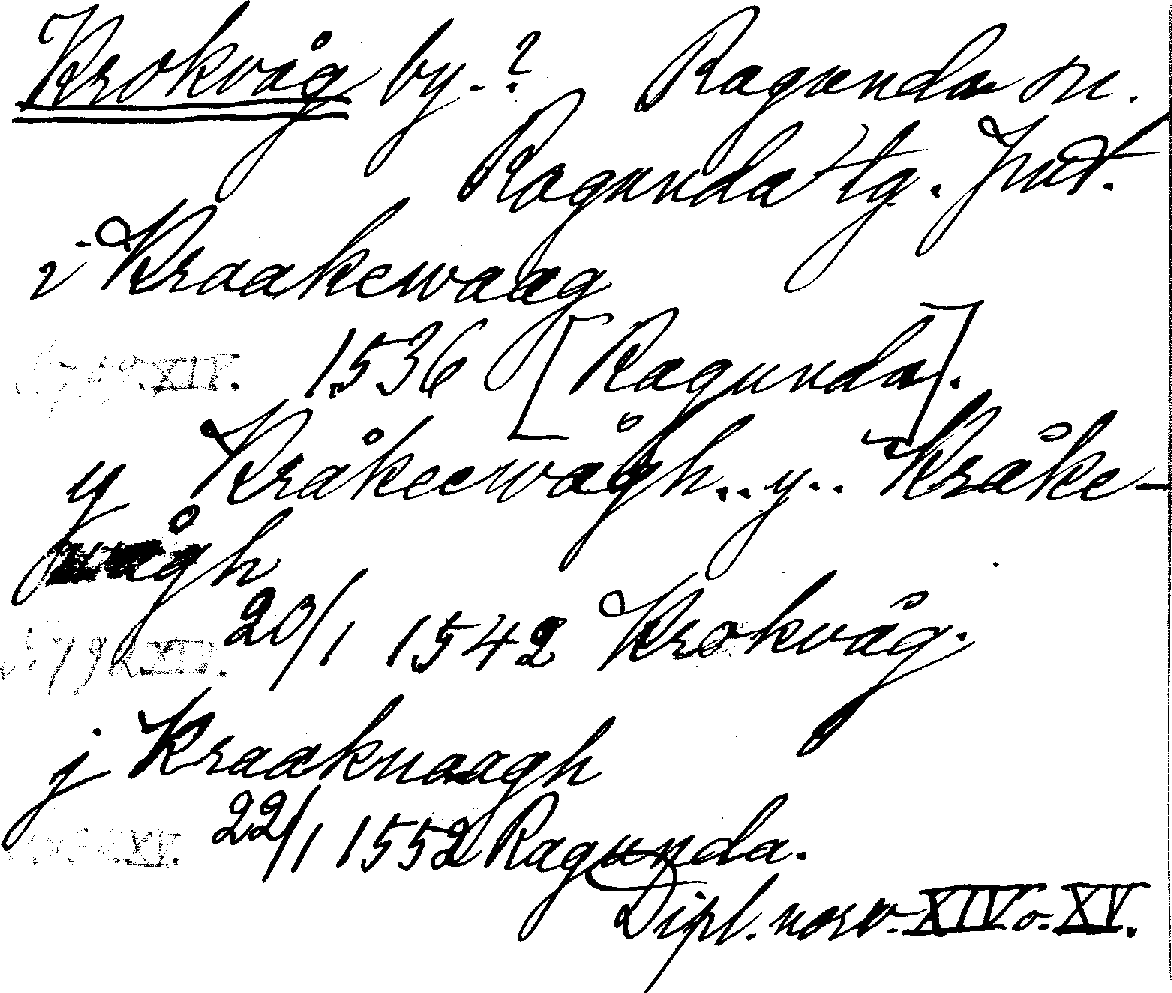 Krokvåg by.? Ragunda sn.
Ragunda tg. Jmt.
i Kraakewaag
XIV. 1536 [Ragunda].
y Kråkeewågh.. y.. Kråke-
wågh
XIV. 20/1 1542 Krokvåg.
j Kraakuaagh
XV. 22/1 1552 Ragunda.
Dipl. norv. XIV o. XV.